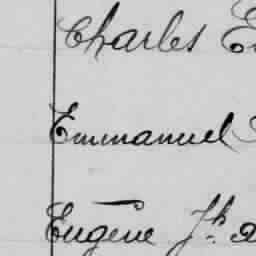 Charles E
Emmanuel
Eugène Jh. a